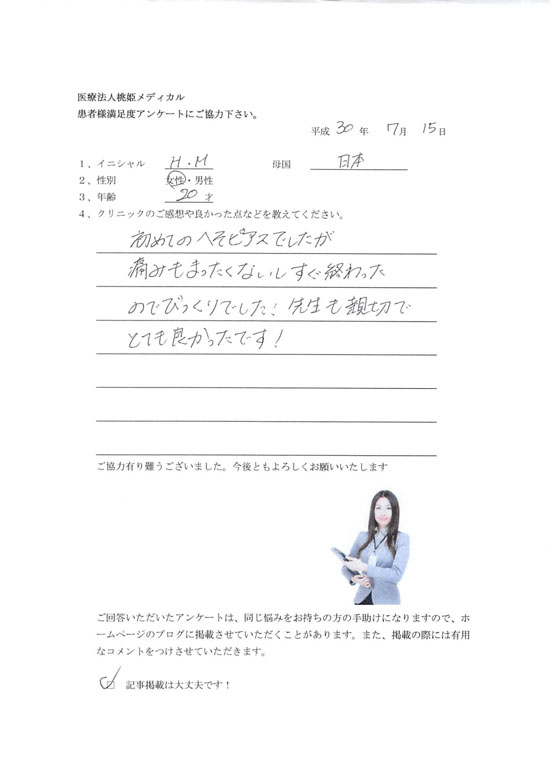 医療法人桃姫メディカル
患者様満足度アンケートにご協力下さい。
平成 30 年 7月 15日
1、イニシャル H・M 母国 日本
2、性別 女性・男性
3、年齢 20 才
4、クリニックのご感想や良かった点などを教えてください。
初めてのへそピアスでしたが
痛みもまったくないしすぐ終わった
のでびっくりでした！先生も親切で
とても良かったです！
ご協力有り難うございました。今後ともよろしくお願いいたします
ご回答いただいたアンケートは、同じ悩みをお持ちの方の手助けになりますので、ホ
ームページのブログに掲載させていただくことがあります。また、掲載の際には有用
なコメントをつけさせていただきます。
記事掲載は大丈夫です！